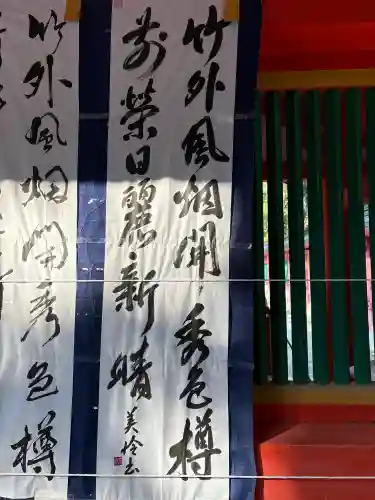 竹外風烟開秀色樽
前榮日麗新晴
美伶
竹外風烟開秀色樽